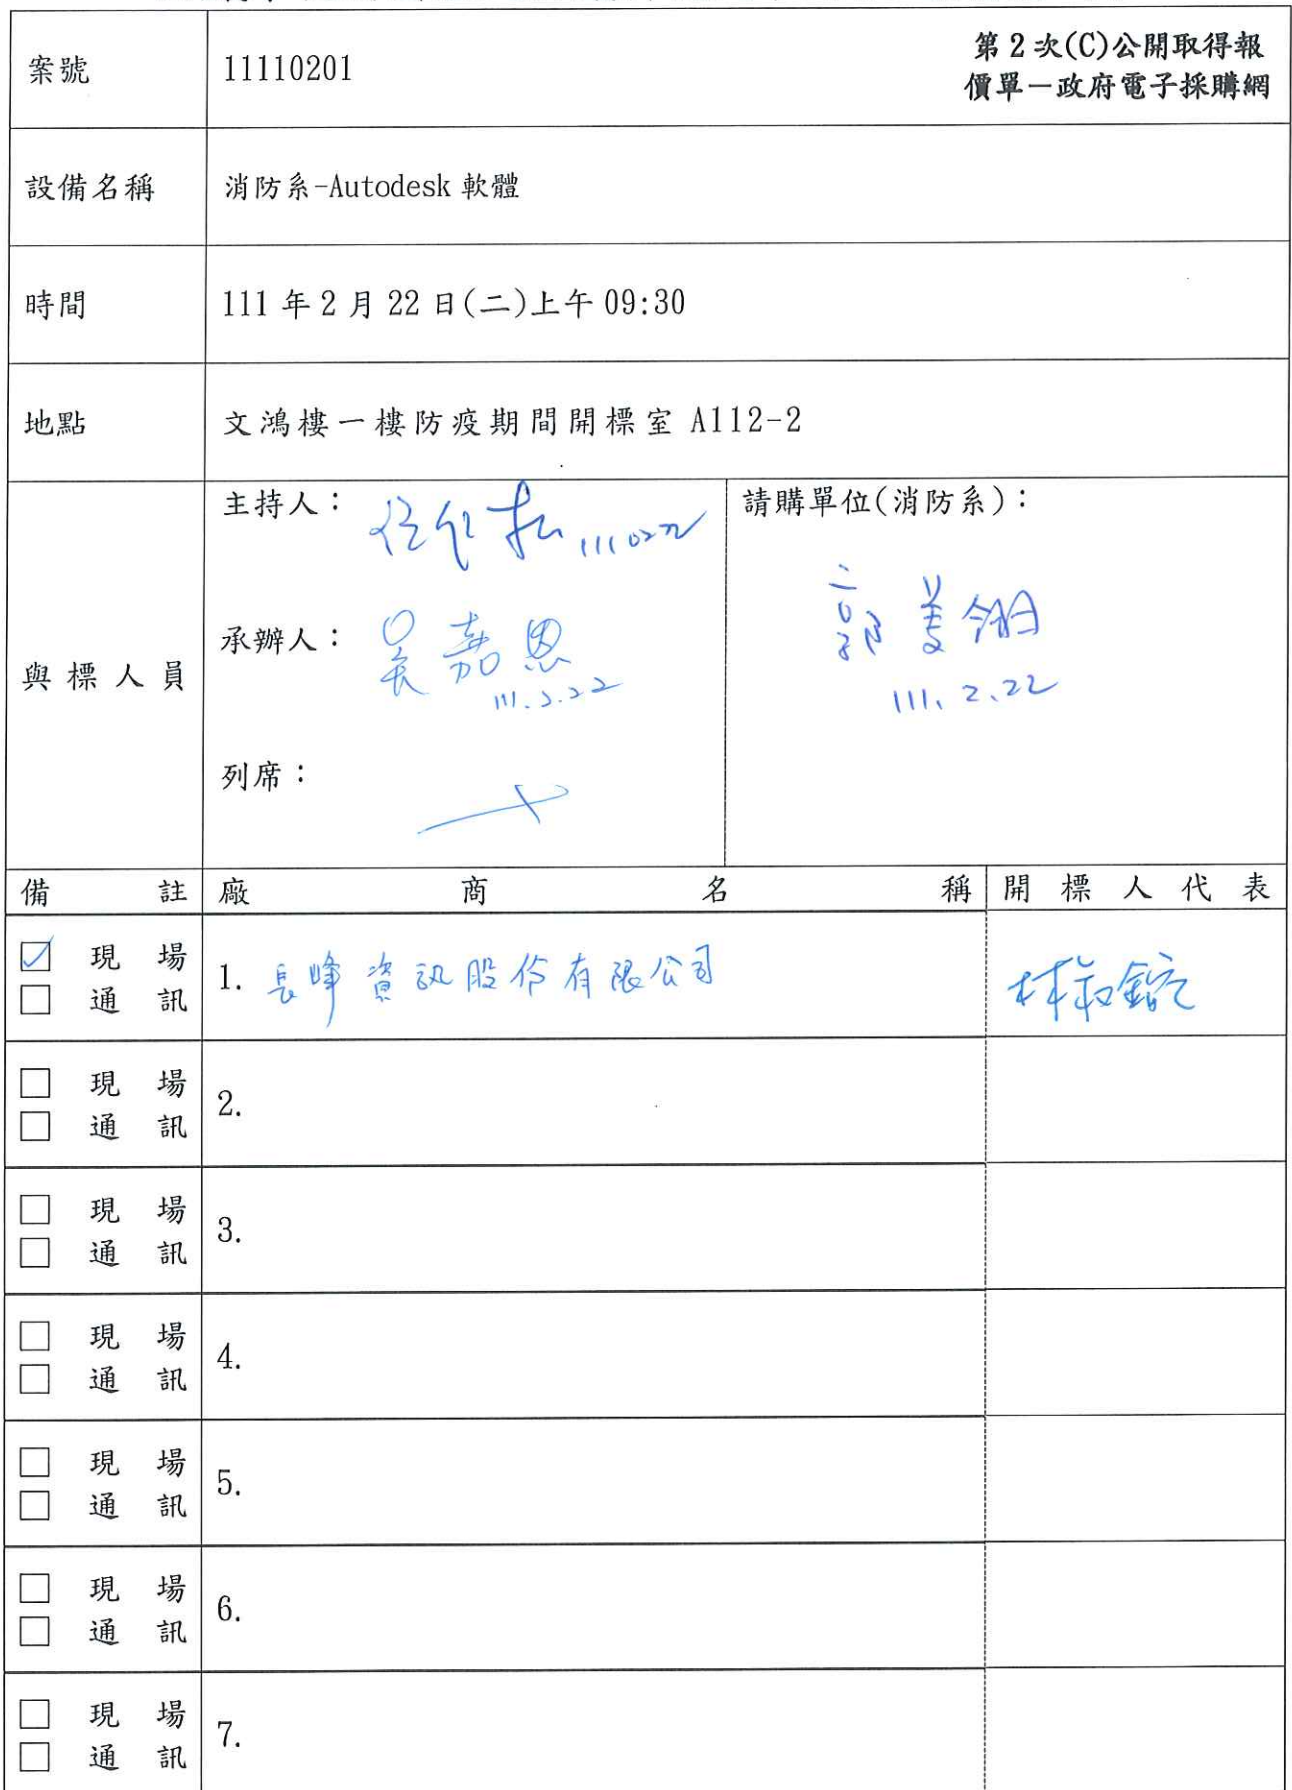 案號
11110201
第2次(C)公開取得報
價單－政府電子採購網
設備名稱
消防系-Autodesk 軟體
時間
111 年 2 月 22 日(二)上午 09:30
地點
文鴻樓一樓防疫期間開標室 A112-2
與標人員
主持人：
1110222
承辦人：
吳嘉恩
111.2.22
列席：
請購單位(消防系)：
郭
111.2.22
備註
廠商名稱
開標人代表
☑ 現場
□ 通訊
1. 長峰資訊股份有限公司
林
□ 現場
□ 通訊
2.
□ 現場
□ 通訊
3.
□ 現場
□ 通訊
4.
□ 現場
□ 通訊
5.
□ 現場
□ 通訊
6.
□ 現場
□ 通訊
7.